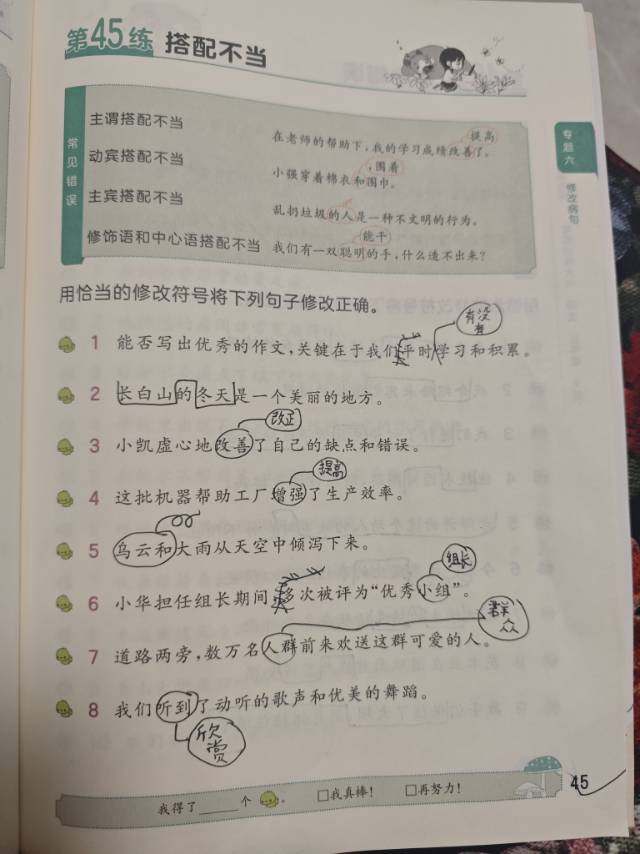 第45练 搭配不当
常见错误
主谓搭配不当
提高
在老师的帮助下，我的学习成绩改善了。
动宾搭配不当
，围着
小强穿着棉衣和围巾。
主宾搭配不当
乱扔垃圾的人是一种不文明的行为。
修饰语和中心语搭配不当
能干
我们有一双聪明的手，什么造不出来？
专题六
修改病句
用恰当的修改符号将下列句子修改正确。
有没有
1 能否写出优秀的作文，关键在于我们平时学习和积累。
2 长白山的冬天是一个美丽的地方。
改正
3 小凯虚心地改善了自己的缺点和错误。
提高
4 这批机器帮助工厂增强了生产效率。
5 乌云和大雨从天空中倾泻下来。
组长
6 小华担任组长期间，多次被评为“优秀小组”。
群众
7 道路两旁，数万名人群前来欢送这群可爱的人。
8 我们听到了动听的歌声和优美的舞蹈。
欣赏
我得了____个 。 □我真棒！ □再努力！
45